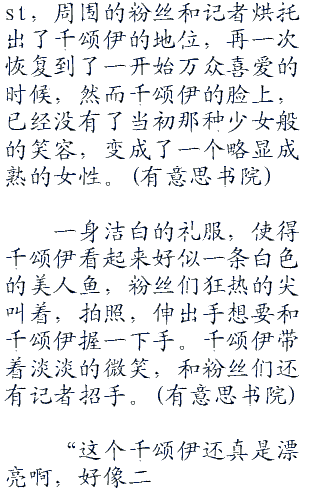 st，周围的粉丝和记者烘托
出了千颂伊的地位，再一次
恢复到了一开始万众喜爱的
时候，然而千颂伊的脸上，
已经没有了当初那种少女般
的笑容，变成了一个略显成
熟的女性。(有意思书院)
一身洁白的礼服，使得
千颂伊看起来好似一条白色
的美人鱼，粉丝们狂热的尖
叫着，拍照，伸出手想要和
千颂伊握一下手。千颂伊带
着淡淡的微笑，和粉丝们还
有记者招手。(有意思书院)
“这个千颂伊还真是漂
亮啊，好像二